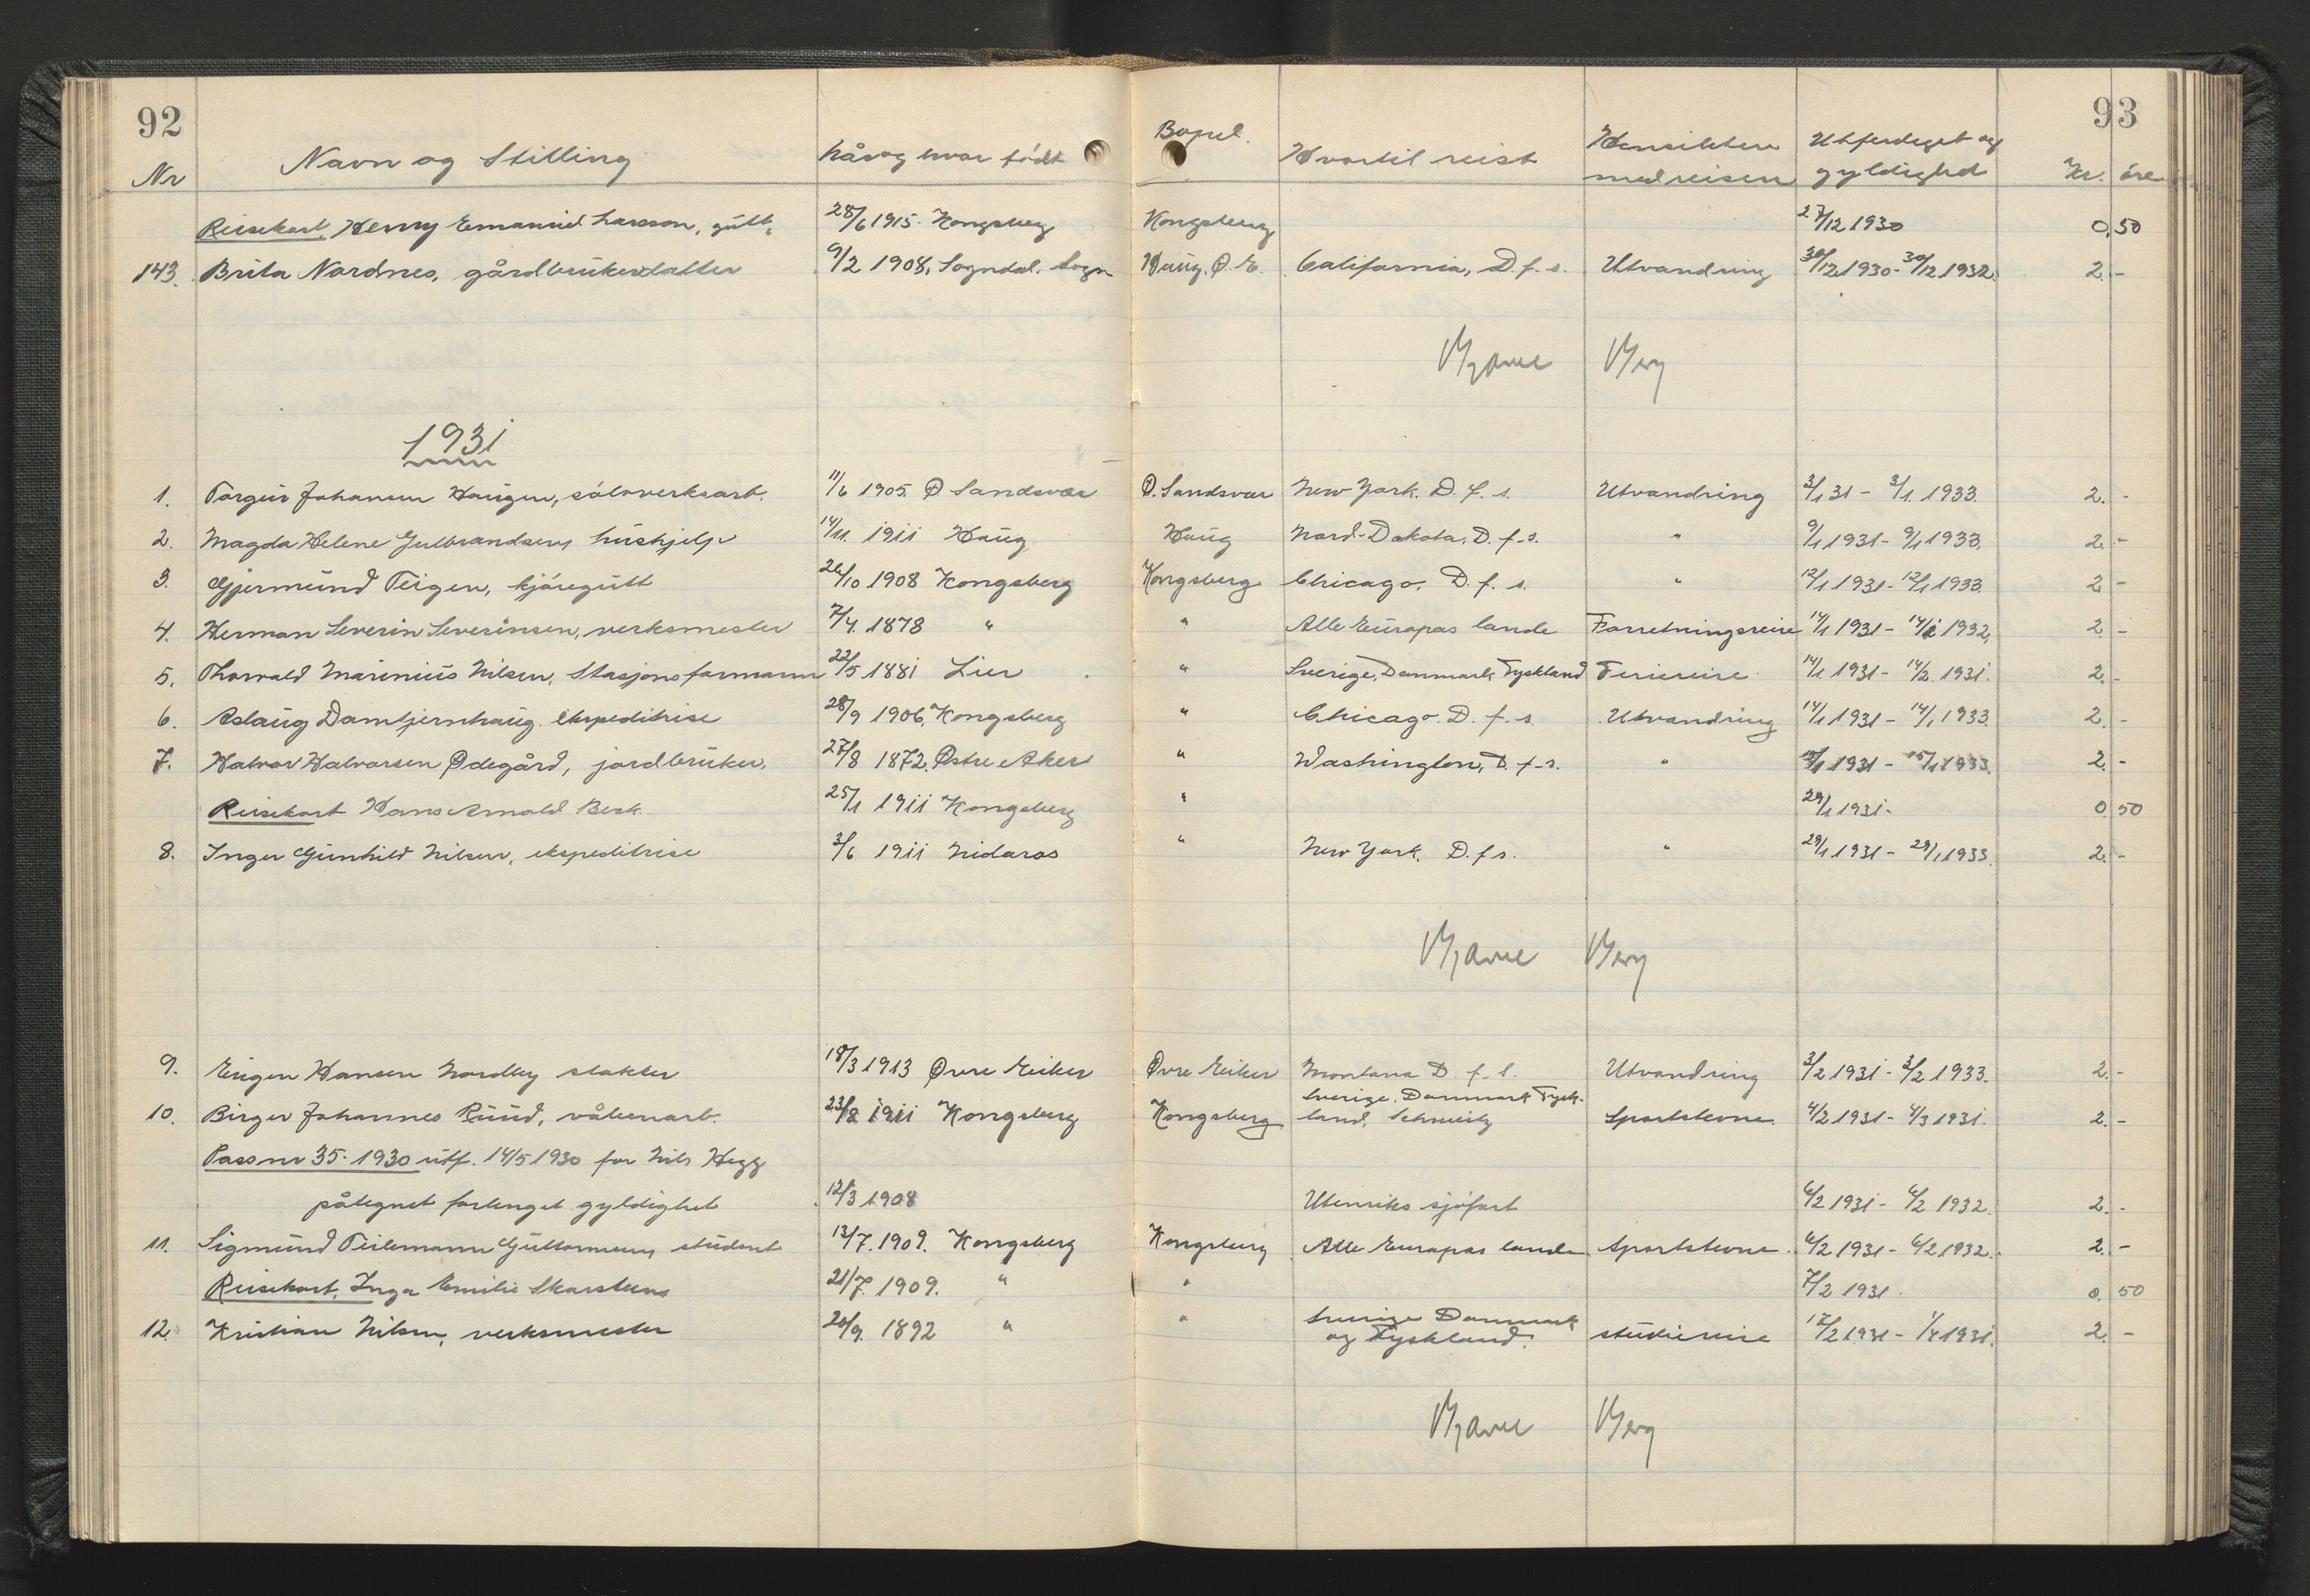 92
93
Nr Navn og Stilling Når og hvor født Bopel. Hvortil reist Hensikten med reisen Utferdiget og gyldighed Kr. øre
Reisekort, Henry Emanuel Larsson, gutt. 28/6 1915. Kongsberg Kongsberg 27/12 1930 0,50
143. Brita Nordnes, gårdbrukerdatter 9/2 1908, Sogndal, Sogn Haug, Ø. E. California, D. f. s. Utvandring 30/12 1930 - 30/12 1932. 2.-
Bjarne Berg
1931
1. Torgeir Johansen Haugen, sølvverksarb. 11/6 1905. Ø Sandsvær Ø. Sandsvær New York. D. f. s. Utvandring 3/1 31 - 3/1 1933. 2.-
2. Magda Helene Gulbrandsen, hushjelp 14/11. 1911 Haug Haug Nord-Dakota. D. f. s. " 9/1 1931 - 9/1 1933. 2.-
3. Gjermund Teigen, kjøregutt 26/10 1908 Kongsberg Kongsberg Chicago. D. f. s. " 12/1 1931 - 12/1 1933. 2 -
4. Herman Severin Severinsen, verksmester 7/4. 1878 " " Alle Europas lande Forretningsreise 14/1 1931 - 14/1 1932, 2 -
5. Thorvald Marinius Nilsen, Stasjonsformann 22/5 1881 Lier " Sverige, Danmark Tyskland Feriereise 14/1. 1931 - 14/2. 1931. 2.-
6. Aslaug Damtjernhaug. ekspeditrise 28/9 1906, Kongsberg " Chicago. D. f. s. Utvandring 14/1 1931 - 14/1 1933. 2.-
7. Halvor Halvorsen Ødegård, jordbruker. 27/8 1872. Østre Aker " Washington, D. f. s. " 15/1 1931 - 15/1 1933. 2.-
Reisekort Hans Arnold Beck 25/1 1911 Kongsberg " 29/1 1931. 0.50
8. Inger Gunhild Nilsen, ekspeditrise 3/6 1911 Nidaros " New York. D. f s. " 29/1 1931 - 29/1 1933. 2.-
Bjarne Berg
9. Eugen Hansen Nordby slakter 18/3 1913 Øvre Eiker Øvre Eiker Montana D. f. s. Utvandring 3/2 1931 - 3/2 1933. 2.-
10. Birger Johannes Ruud, våbenarb. 23/8 1911 Kongsberg Kongsberg Sverige. Danmark Tysk-
land, Schweitz Sportstevne. 4/2 1931 - 4/3 1931. 2.-
Pass nr 35 - 1930 utf. 14/5 1930 for Nils Hegg
påtegnet forlenget gyldighet 12/3 1908 Utenriks sjøfart 6/2 1931 - 6/2 1932. 2.-
11. Sigmund Teilemann Guttormsen, student 13/7. 1909. Kongsberg Kongsberg Alle Europas lande Sportstevne. 6/2 1931 - 6/2 1932. 2.-
Reisekort, Inga Emilie Skarsteen 21/7. 1909. " " 7/2 1931. 0.50
12. Kristian Nilsen, verksmester 20/9. 1892 " " Sverige Danmark
og Tyskland. studiereise 17/2 1931 - 1/4 1931. 2.-
Bjarne Berg